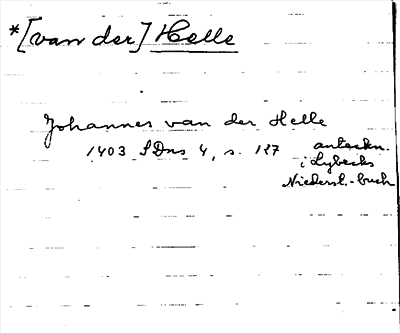 *[van der] Helle
Johannes van der Helle
1403 SDns 4, s. 127 anteckn.
i Lybecks
Niederst.-buch